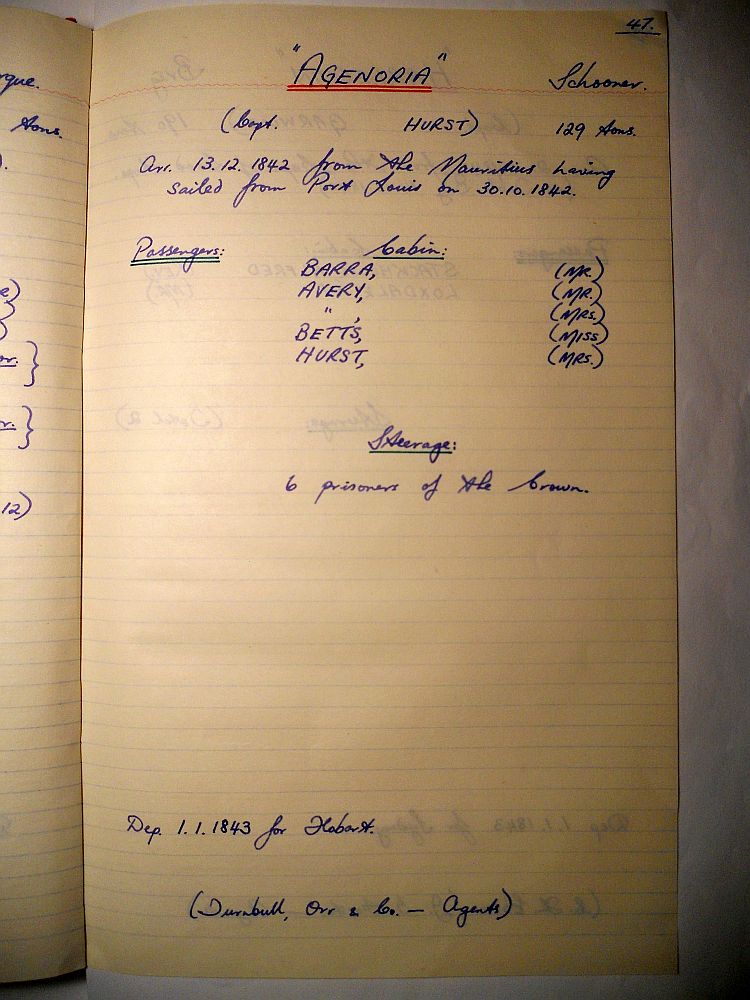 47.
"AGENORIA" Schooner.
(Capt. HURST) 129 tons.
Arr. 13.12.1842 from the Mauritius having
sailed from Port Louis on 30.10.1842.
Passengers: Cabin:
BARRA, (MR.)
AVERY, (MR.)
" , (MRS.)
BETTS, (MISS)
HURST, (MRS.)
Steerage:
6 prisoners of the Crown.
Dep. 1.1.1843 for Hobart.
(Turnbull, Orr & Co. — Agents)
tons.
12)